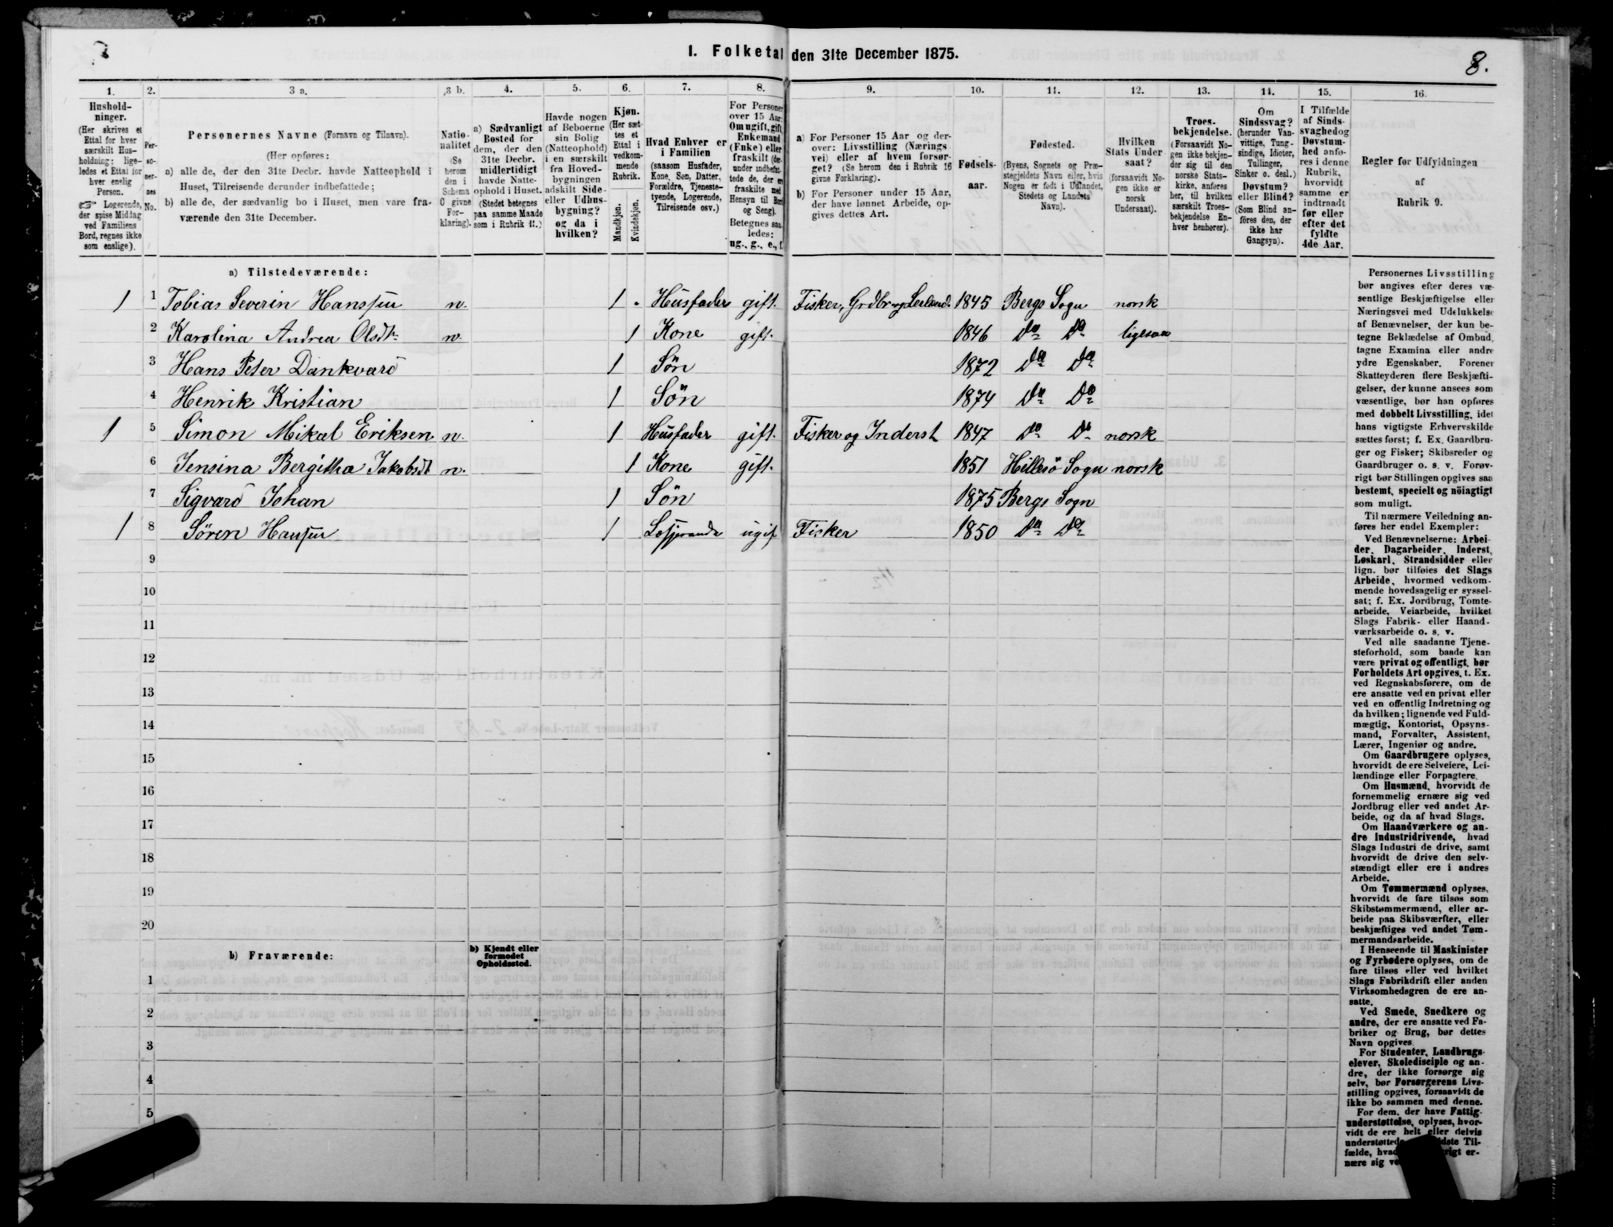 I. Folketal den 31te December 1875.
8.
1.
Hushold-
ninger.
(Her skrives et
Ettal for hver
særskilt Hus-
holdning; lige-
ledes et Ettal for
hver enslig
Person.
☞ Logerende,
der spise Middag
ved Familiens
Bord, regnes ikke
som enslige).
2.
Per-
so-
ner-
nes
No.
3 a.
Personernes Navne (Fornavn og Tilnavn).
(Her opføres:
a) alle de, der den 31te Decbr. havde Natteophold i
Huset, Tilreisende derunder indbefattede;
b) alle de, der sædvanlig bo i Huset, men vare fra-
værende den 31te December.
3 b.
Natio-
nalitet
(Se
herom
den i
Schema
0 givne
For-
klaring).
4.
a) Sædvanligt
Bosted for
dem, der den
31te Decbr.
midlertidigt
havde Natte-
ophold i Huset.
(Stedet betegnes
paa samme Maade
som i Rubrik 11.)
5.
Havde nogen
af Beboerne
sin Bolig
(Natteophold)
i en særskilt
fra Hoved-
bygningen
adskilt Side-
eller Udhus-
bygning?
og da i
hvilken?
6.
Kjøn.
(Her sæt-
tes et
Ettal i
vedkom-
mende
Rubrik.
Mandkjøn.
Kvindekjøn.
7.
Hvad Enhver er
i Familien
(saasom Husfader,
Kone, Søn, Datter,
Forældre, Tjeneste-
tyende, Logerende,
Tilreisende osv.)
8.
For Personer
over 15 Aar:
Om ugift, gift,
Enkemand
(Enke) eller
fraskilt
ug., g., e., f.
9.
a) For Personer 15 Aar og der-
over: Livsstilling (Nærings-
vei) eller af hvem forsør-
get? (Se herom den i Rubrik 16
givne Forklaring).
b) For Personer under 15 Aar,
der have lønnet Arbeide, op-
gives dettes Art.
10.
Fødsels-
aar.
11.
Fødested.
(Byens, Sognets og Præ-
stegjeldets Navn eller, hvis
Nogen er født i Udlandet,
Stedets og Landets
Navn).
12.
Hvilken
Stats Under-
saat?
(forsaavidt No-
gen ikke er
norsk
Undersaat).
13.
Troes-
bekjendelse.
(Forsaavidt No-
gen ikke bekjen-
der sig til den
norske Stats-
kirke, anføres
her, til hvilken
særskilt Troes-
bekjendelse En-
hver henhører).
14.
Om
Sindssvag?
(herunder Van-
vittige, Tung-
sindige, Idioter,
Tullinger,
Sinker o. desl.)
Døvstum?
eller Blind?
(Som Blind an-
føres den, der
ikke har
Gangsyn).
15.
I Tilfælde
af Sinds-
svaghed og
Døvstum-
hed anfø-
res i denne
Rubrik,
hvorvidt
samme er
indtraadt
før eller
efter det
fyldte
4de Aar.
16.
Regler før Udfyldningen
af
Rubrik 9.
a) Tilstedeværende:
1 1 Tobias Severin Hanssen n. 1 Husfader gift. Fisker, Grdbr og Selveier 1845 Bergs Sogn norsk
2 Karolina Andrea Olsdtr n. 1 Kone gift. 1846 Do Do ligesaa
3 Hans Peter Dankvard 1 Søn 1872 Do Do
4 Henrik Kristian 1 Søn 1874 Do Do
1 5 Simon Mikal Eriksen n. 1 Husfader gift. Fisker og Inderst 1847 Do Do norsk
6 Jensina Bergitha Jakobsdt n. 1 Kone gift. 1851 Hillesø Sogn norsk
7 Sigvard Johan 1 Søn 1875 Bergs Sogn
1 8 Søren Hansen 1 Losjerande ugif Fisker 1850 Do Do
9
10
11
12
13
14
15
16
17
18
19
20
b) Fraværende:
b) Kjendt eller
formodet
Opholdssted.
1
2
3
4
5
Personernes Livsstilling
bør angives efter deres væ-
sentlige Beskjæftigelse eller
Næringsvei med Udelukkelse
af Benævnelser, der kun be-
tegne Beklædelse af Ombud,
tagne Examina eller andre
ydre Egenskaber. Forener
Skatteyderen flere Beskjæfti-
gelser, der kunne ansees som
væsentlige, bør han opføres
med dobbelt Livsstilling, idet
hans vigtigste Erhvervskilde
sættes først; f. Ex. Gaardbru-
ger og Fisker; Skibsreder og
Gaardbruger o. s. v. Forøv-
rigt bør Stillingen opgives saa
bestemt, specielt og nöiagtigt
som muligt.
Til nærmere Veiledning an-
føres her endel Exempler:
Ved Benævnelserne: Arbei-
der, Dagarbeider, Inderst,
Løskarl, Strandsidder eller
lign. bør tilføies det Slags
Arbeide, hvormed vedkom-
mende hovedsagelig er syssel-
sat; f. Ex. Jordbrug, Tomte-
arbeide, Veiarbeide, hvilket
Slags Fabrik- eller Haand-
værksarbeide o. s. v.
Ved alle saadanne Tjene-
steforhold, som baade kan
være privat og offentligt, bør
Forholdets Art opgives, t. Ex.
ved Regnskabsførere, om de
ere ansatte ved en privat eller
ved en offentlig Indretning og
da hvilken; lignende ved Fuld-
mægtig, Kontorist, Opsyns-
mand, Forvalter, Assistent,
Lærer, Ingeniør og andre.
Om Gaardbrugere oplyses,
hvorvidt de ere Selveiere, Lei-
lændinge eller Forpagtere.
Om Husmænd, hvorvidt de
fornemmelig ernære sig ved
Jordbrug eller ved andet Ar-
beide, og da af hvad Slags.
Om Haandværkere og an-
dre Industridrivende, hvad
Slags Industri de drive, samt
hvorvidt de drive den selv-
stændigt eller ere i andres
Arbeide.
Om Tømmermænd oplyses,
hvorvidt de fare tilsøs som
Skibstømmermænd, eller ar-
beide paa Skibsværfter, eller
beskjæftiges ved andet Tøm-
mermandsarbeide.
I Henseende til Maskinister
og Fyrbødere oplyses, om de
fare tilsøs eller ved hvilket
Slags Fabrikdrift eller anden
Virksomhedsgren de ere an-
satte.
Ved Smede, Snedkere og
andre, der ere ansatte ved Fa-
briker og Brug, bør dettes
Navn opgives.
For Studenter, Landbrugs-
elever, Skoledisciple og an-
dre, der ikke forsørge sig
selv, bør Forsørgerens Livs-
stilling opgives, forsaavidt de
ikke bo sammen med denne.
For dem, der have Fattig-
understøttelse, oplyses, hvor-
vidt de ere helt eller delvis